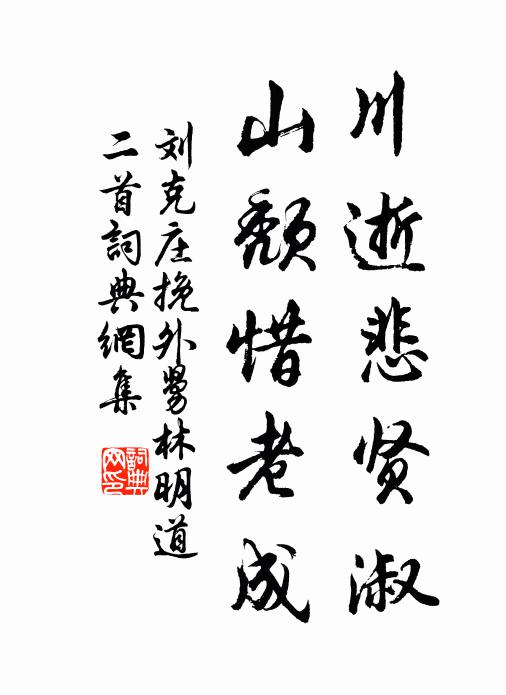 川逝悲贤淑
山颓惜老成
刘克庄挽外舅林明道
二首詞典網集
詞典
网印